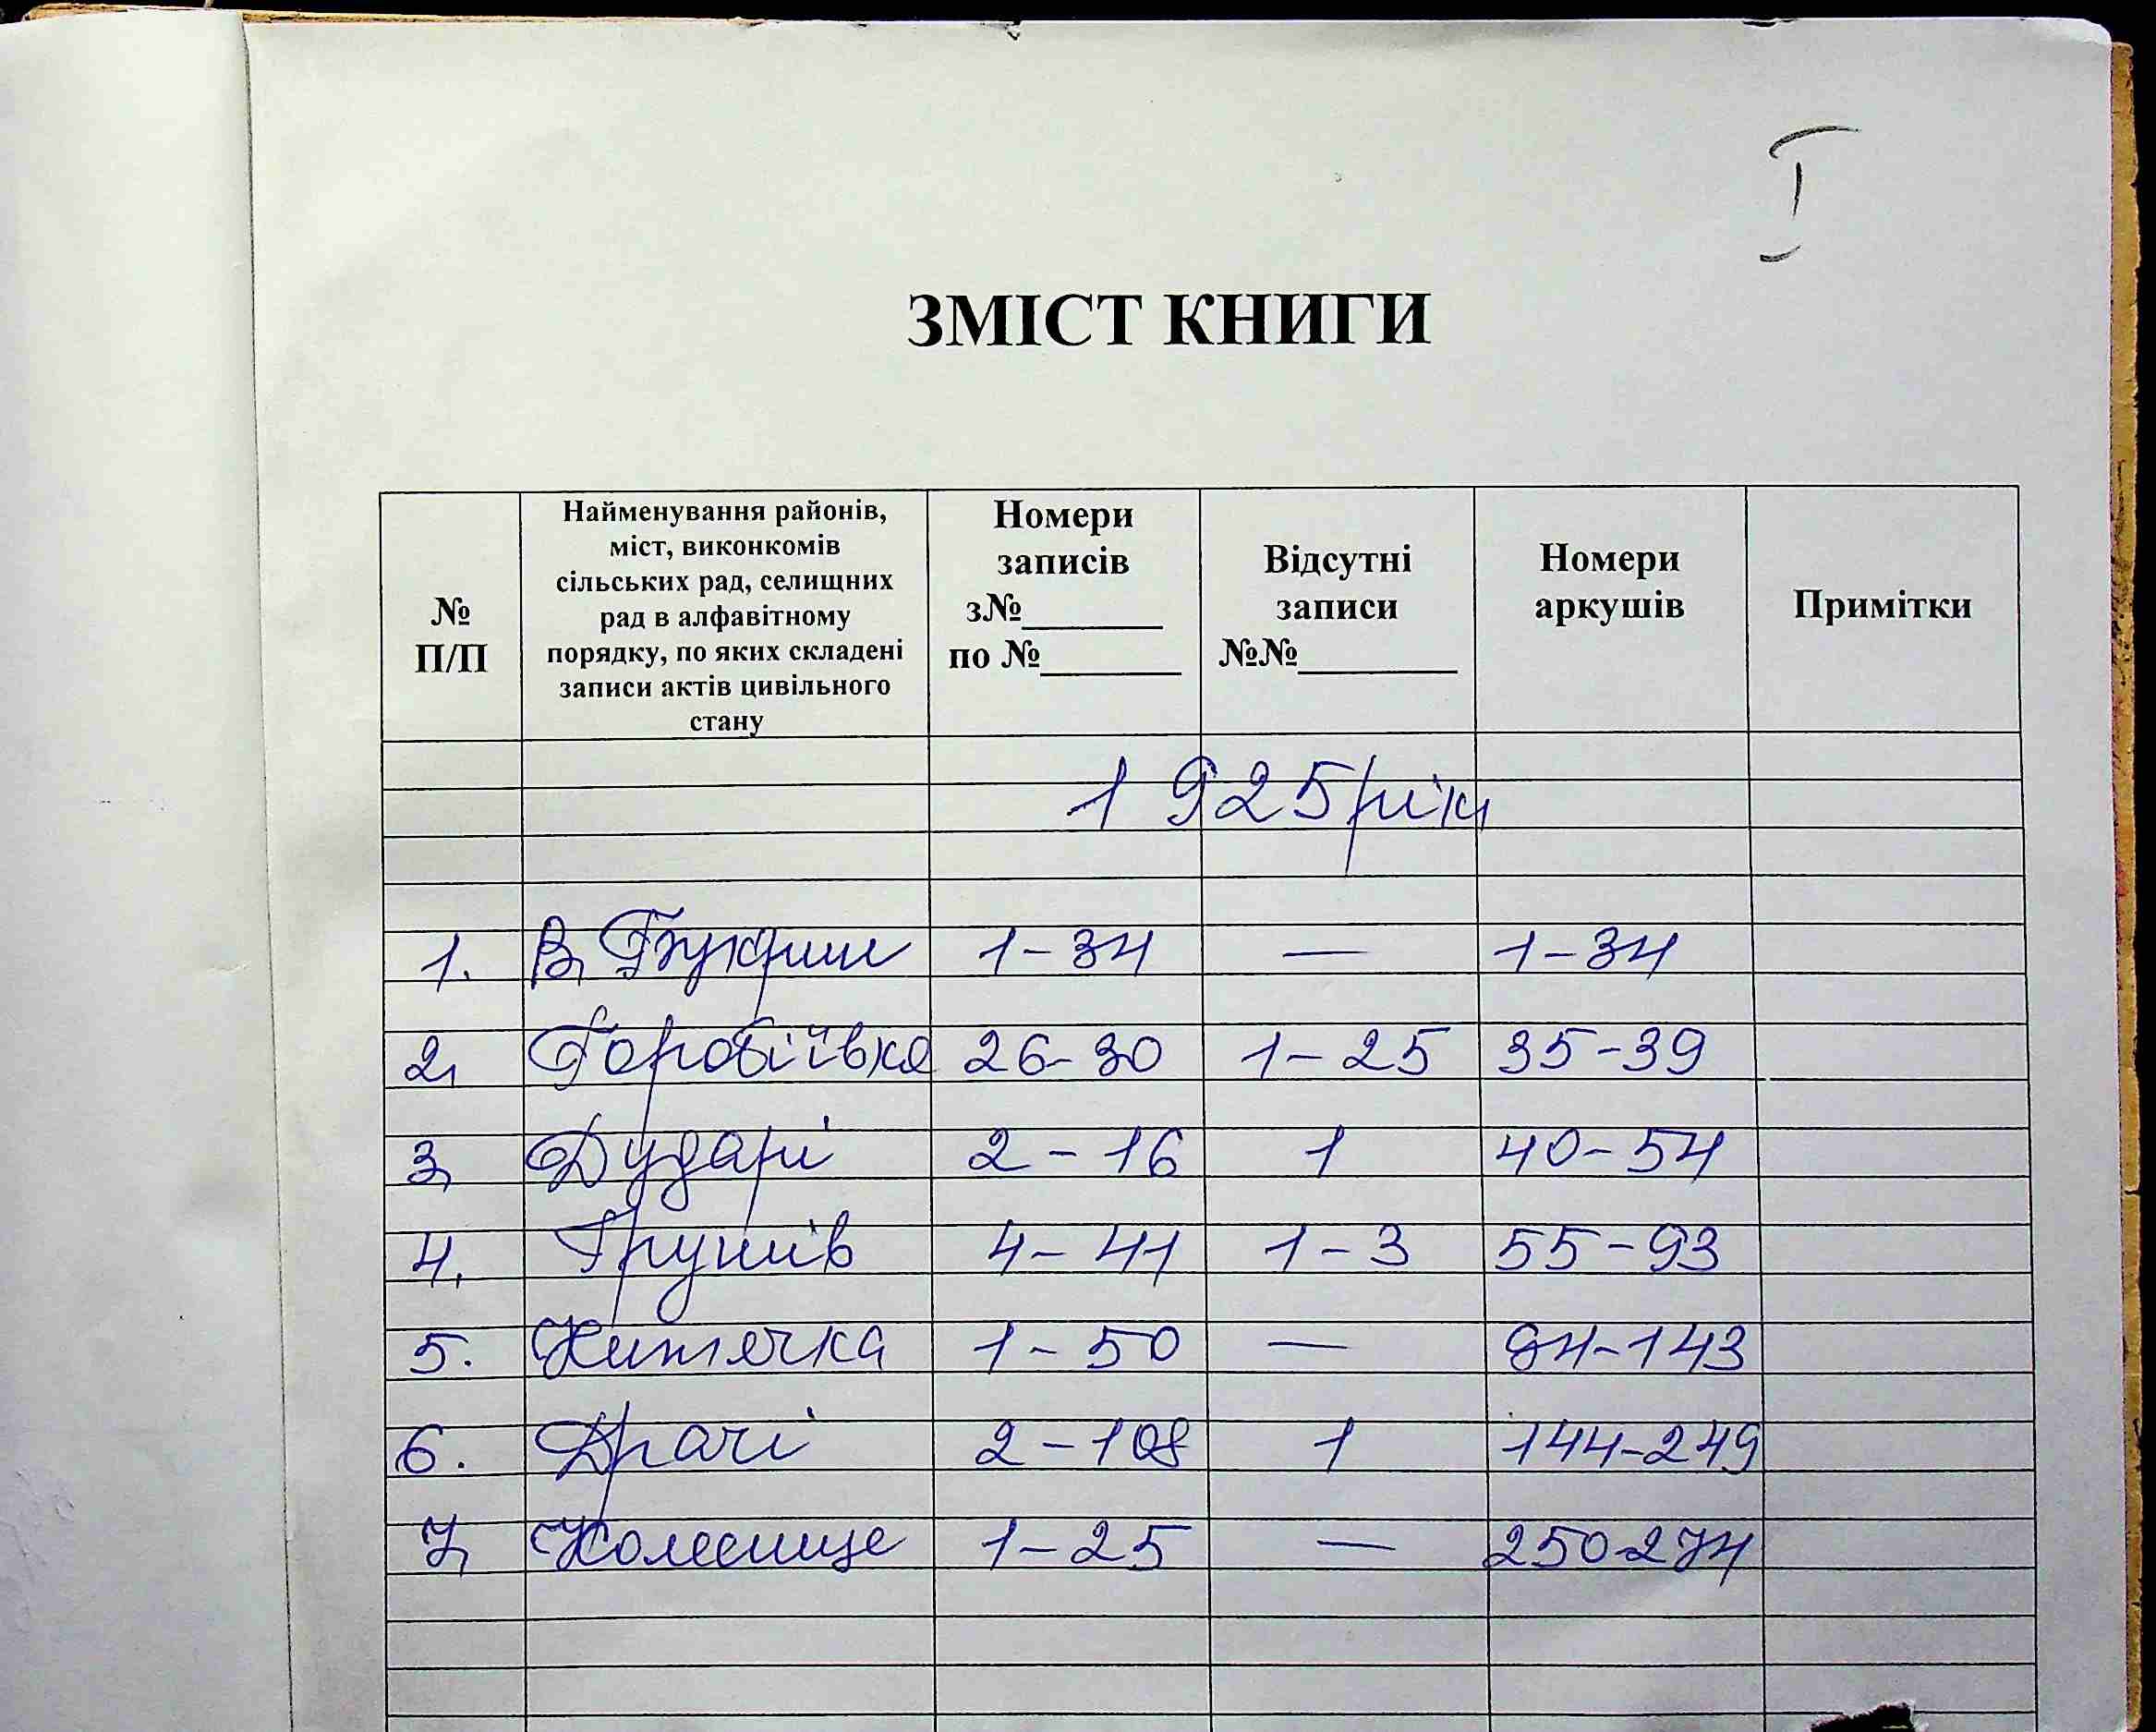 I
ЗМІСТ КНИГИ
№ П/П
Найменування районів, міст, виконкомів сільських рад, селищних рад в алфавітному порядку, по яких складені записи актів цивільного стану
Номери записів з№_______ по №_______
Відсутні записи №№________
Номери аркушів
Примітки
1925 рік
1. В. Букрин 1-34 — 1-34
2. Горобіївка 26-30 1-25 35-39
3. Дударі 2-16 1 40-54
4. Грушів 4-41 1-3 55-93
5. 1-50 — 94-143
6. Драчі 2-108 1 144-249
7. Колесище 1-25 — 250-274